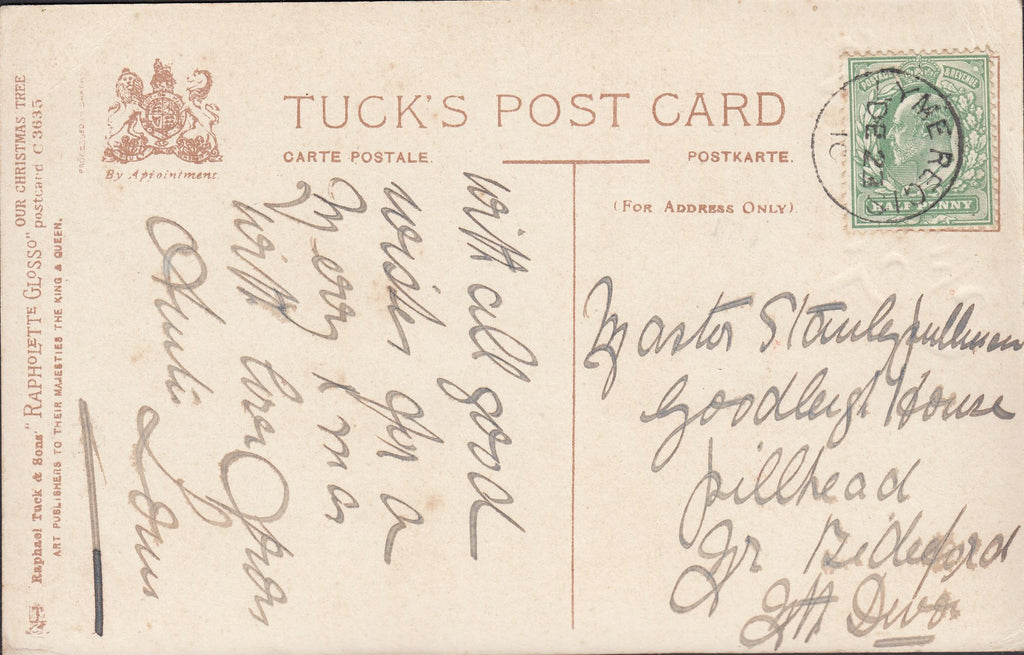 TUCK'S POST CARD
CARTE POSTALE.
POSTKARTE.
(FOR ADDRESS ONLY).
By Appointment.
OUR CHRISTMAS TREE
Raphael Tuck & Sons' "RAPHOLETTE GLOSSO" postcard C 3635
ART PUBLISHERS TO THEIR MAJESTIES THE KING & QUEEN.
& REVENUE
HALFPENNY
LYME REGIS
DE 23
With all good
wishes for a
Merry Xmas
with love from
Auntie Louie
Master Stanley pullman
Goodleigh House
pillhead
Nr Bideford
Nth Devon